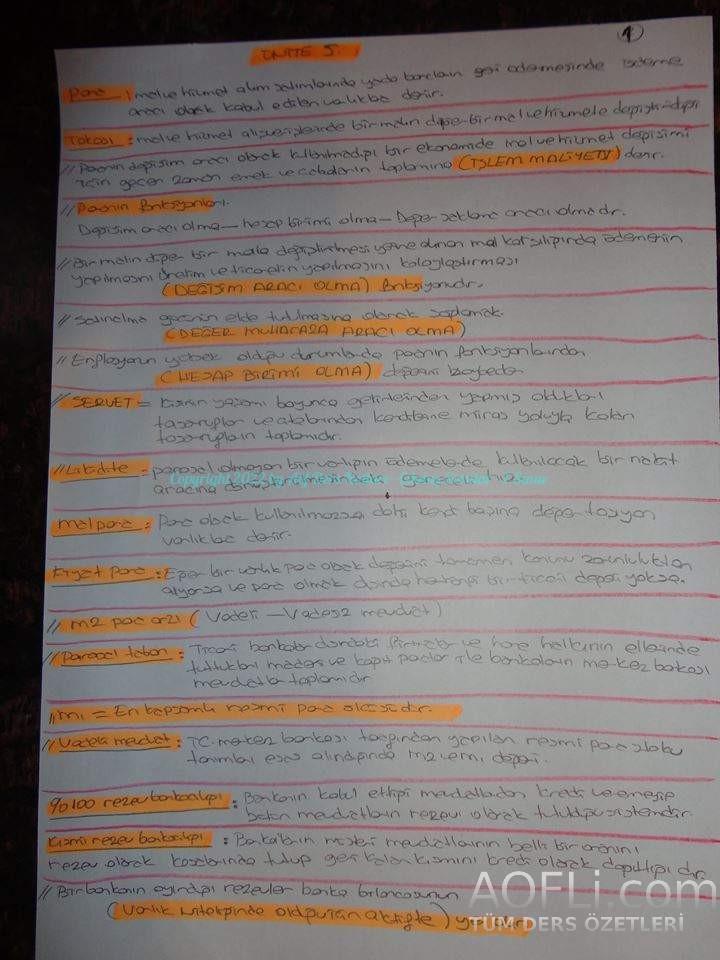 1
ÜNİTE 5.
Para : mal ve hizmet alım satımlarında yada borçların geri ödemesinde ödeme
aracı olarak kabul edilen varlıklar denir.
Takas : mal ve hizmet alışverişlerinde bir malın diğer bir mal ve hizmetle değiştirildiği
// Paranın değişim aracı olarak kullanılmadığı bir ekonomide mal ve hizmet değişimi
için geçen zaman emek ve çabaların toplamına (İŞLEM MALİYETİ) denir.
// Paranın fonksiyonları.
Değişim aracı olma — hesap birimi olma — Değer saklama aracı olmadır.
// Bir malın diğer bir malla değiştirilmesi yerine alınan mal karşılığında ödemenin
yapılmasını üretim ve ticaretin yapılmasını kolaylaştırması
(DEĞİŞİM ARACI OLMA) fonksiyonudur.
// Satınalma gücünün elde tutulmasına olanak sağlamak.
(DEĞER MUHAFAZA ARACI OLMA)
// Enflasyonun yüksek olduğu durumlarda paranın fonksiyonlarından
(HESAP BİRİMİ OLMA) değerini kaybeder
// SERVET = Kişinin yaşamı boyunca gelirlerinden yapmış oldukları
tasarruflar ve atalarından kendisine miras yoluyla kalan
tasarrufların toplamıdır.
// Likidite - parasal olmayan bir varlığın ödemelerde kullanılacak bir nakit
aracına dönüştürülmesindeki göreceli hız
mal para : Para olarak kullanılmazsa dahi kendi başına değer taşıyan
varlıklar denir.
Kağıt para : Eğer bir varlık para olarak değerini tamamen kanunu zorunluluktan
alıyorsa ve para olmak dışında herhangi bir ticari değeri yoksa.
// m2 para arzı ( Vadeli — Vadesiz mevduat )
// parasal taban : Ticari bankalar dışındaki firmalar ve hane halkının ellerinde
tuttukları madeni ve kağıt paralar ile bankaların merkez bankası
mevduatlar toplamıdır
// m1 = En kapsamlı resmi para ölçüsüdür.
// Vadeli mevduat : TC merkez bankası tarafından yapılan resmi para stoku
tanımları esas alındığında m2 değeri.
%100 rezerv bankacılığı : Bankanın kabul ettiği mevduatlardan kredi vermeyip
bütün mevduatların rezerv olarak tutulduğu sistemdir.
Kısmi rezerv bankacılığı : Bankaların mevduatlarının belli bir oranını
rezerv olarak kasalarında tutup geri kalan kısmını kredi olarak dağıttığı dır.
// Bir bankanın ayırdığı rezervler banka bilançosunun
(Varlık niteliğinde olduğundan aktifte) yer alır
AOFLi.com
TÜM DERS ÖZETLERİ